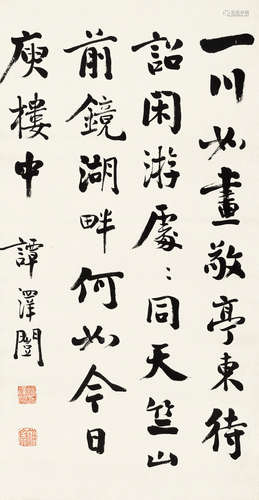 一川如畫敬亭東待
詔閑游處〻同天竺山
前鏡湖畔何如今日
庾樓中
譚澤闓